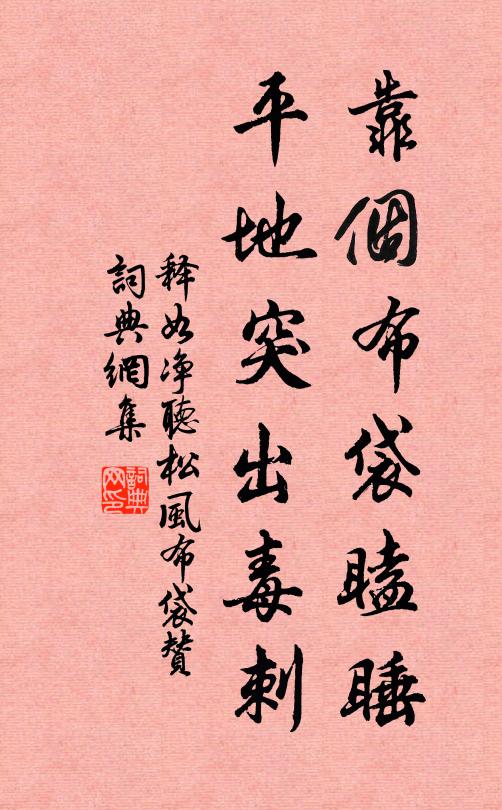 靠個布袋瞌睡
平地突出毒刺
释如净聽松風布袋贊
詞典網集
詞典網印